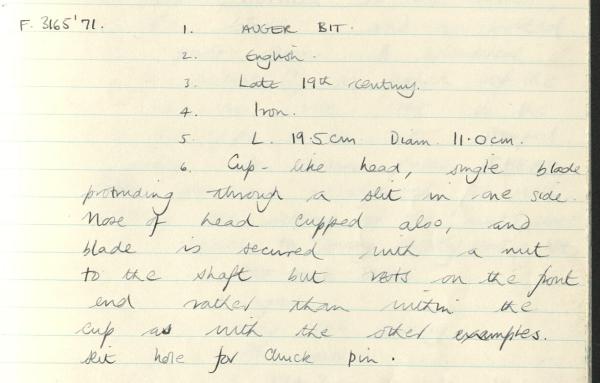 F. 3165'71. 1. AUGER BIT.
2. English.
3. Late 19th century.
4. Iron.
5 L. 19.5cm Diam. 11.0cm.
6. Cup-like head, single blade
protruding through a slit in one side.
Nose of head cupped also, and
blade is secured with a nut
to the shaft but rests on the front
end rather than within the
cup as with the other examples.
slit hole for chuck pin.